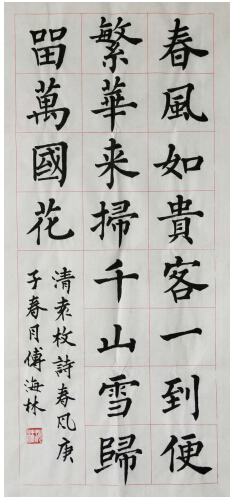 春風如貴客一到便
繁華来掃千山雪歸
畱萬國花
清袁枚詩春風庚
子春月傅海林